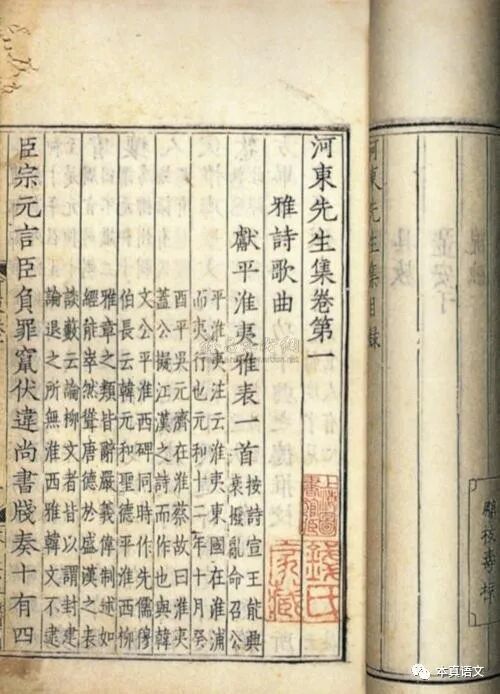 河東先生集目錄
河東先生集卷第一
雅詩歌曲
獻平淮夷雅表一首
按詩宣王能興
衰撥亂命召公
平淮夷注云在淮夷東國在淮浦
而夷行也元和十二年十月癸
酉平吳元濟在淮蔡故曰淮夷
蓋公擬江漢之詩而作也與韓
文公平淮西碑同時作先儒穆
伯長云韓元和聖德平淮西柳
雅章之類皆辭嚴義偉制述如
經能崒然聳唐德於盛漢之表
談藪云論柳文者皆以謂封建
論退之所無淮西雅韓文不逮
臣宗元言臣負罪竄伏違尚書牋奏十有四
上海圖書館藏
本真语文